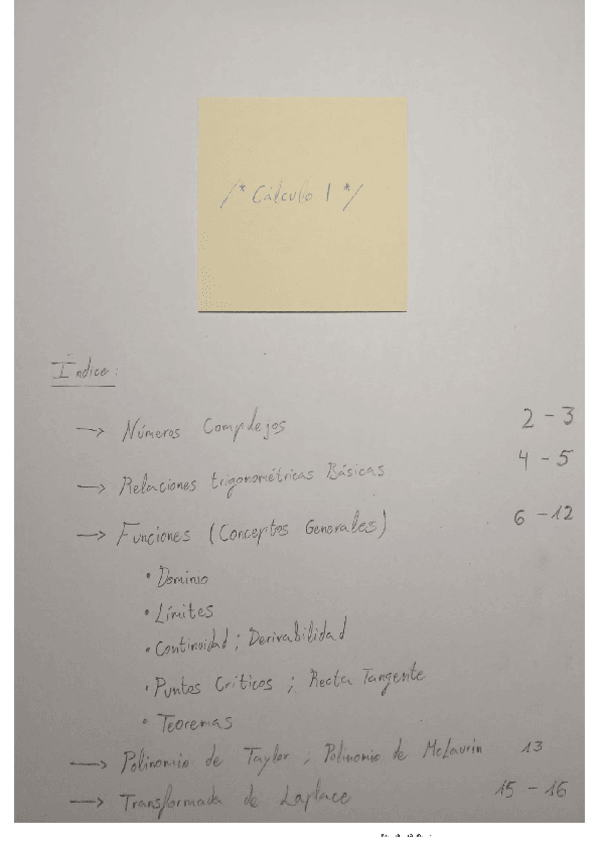 /* Cálculo 1 */
Índice:
→ Números Complejos 2 - 3
→ Relaciones trigonométricas Básicas 4 - 5
→ Funciones (Conceptos Generales) 6 - 12
• Dominio
• Límites
• Continuidad ; Derivabilidad
• Puntos Críticos ; Recta Tangente
• Teoremas
→ Polinomio de Taylor ; Polinomio de McLaurin 13
→ Transformada de Laplace 15 - 16